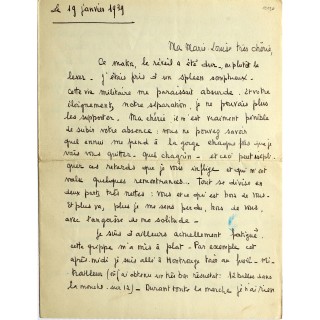 Le 19 janvier 1939
Ma Marie Louise très chérie,
Ce matin, le réveil a été dur, ou plutôt le
lever - j'étais pris d'un spleen
cette vie militaire me paraissait absurde. et votre
éloignement, notre séparation, je ne pouvais plus
les supporter. Ma chérie il m'est vraiment pénible
de subir votre absence : vous ne pouvez savoir
quel ennui me prend à la gorge chaque fois que je
vais vous quitter. Quel chagrin - et ceci peut expli-
quer ces retards que je vous inflige et qui m'ont
valu quelques remontrances.. Tout se divise en
deux parts très nettes : vous et ce qui est hors de vous.
Et plus va, plus je me sens perdu, hors de vous,
avec l'angoisse de ma solitude -
Je suis d'ailleurs actuellement fatigué
cette grippe m'a mis à plat - Par exemple cet
après-midi je suis allé à Montrouge tirer au fusil-Mi-
trailleur (où j'ai obtenu un très bon résultat : 12 balles dans
la mouche - sur 12) - Durant toute la marche je n'ai rien